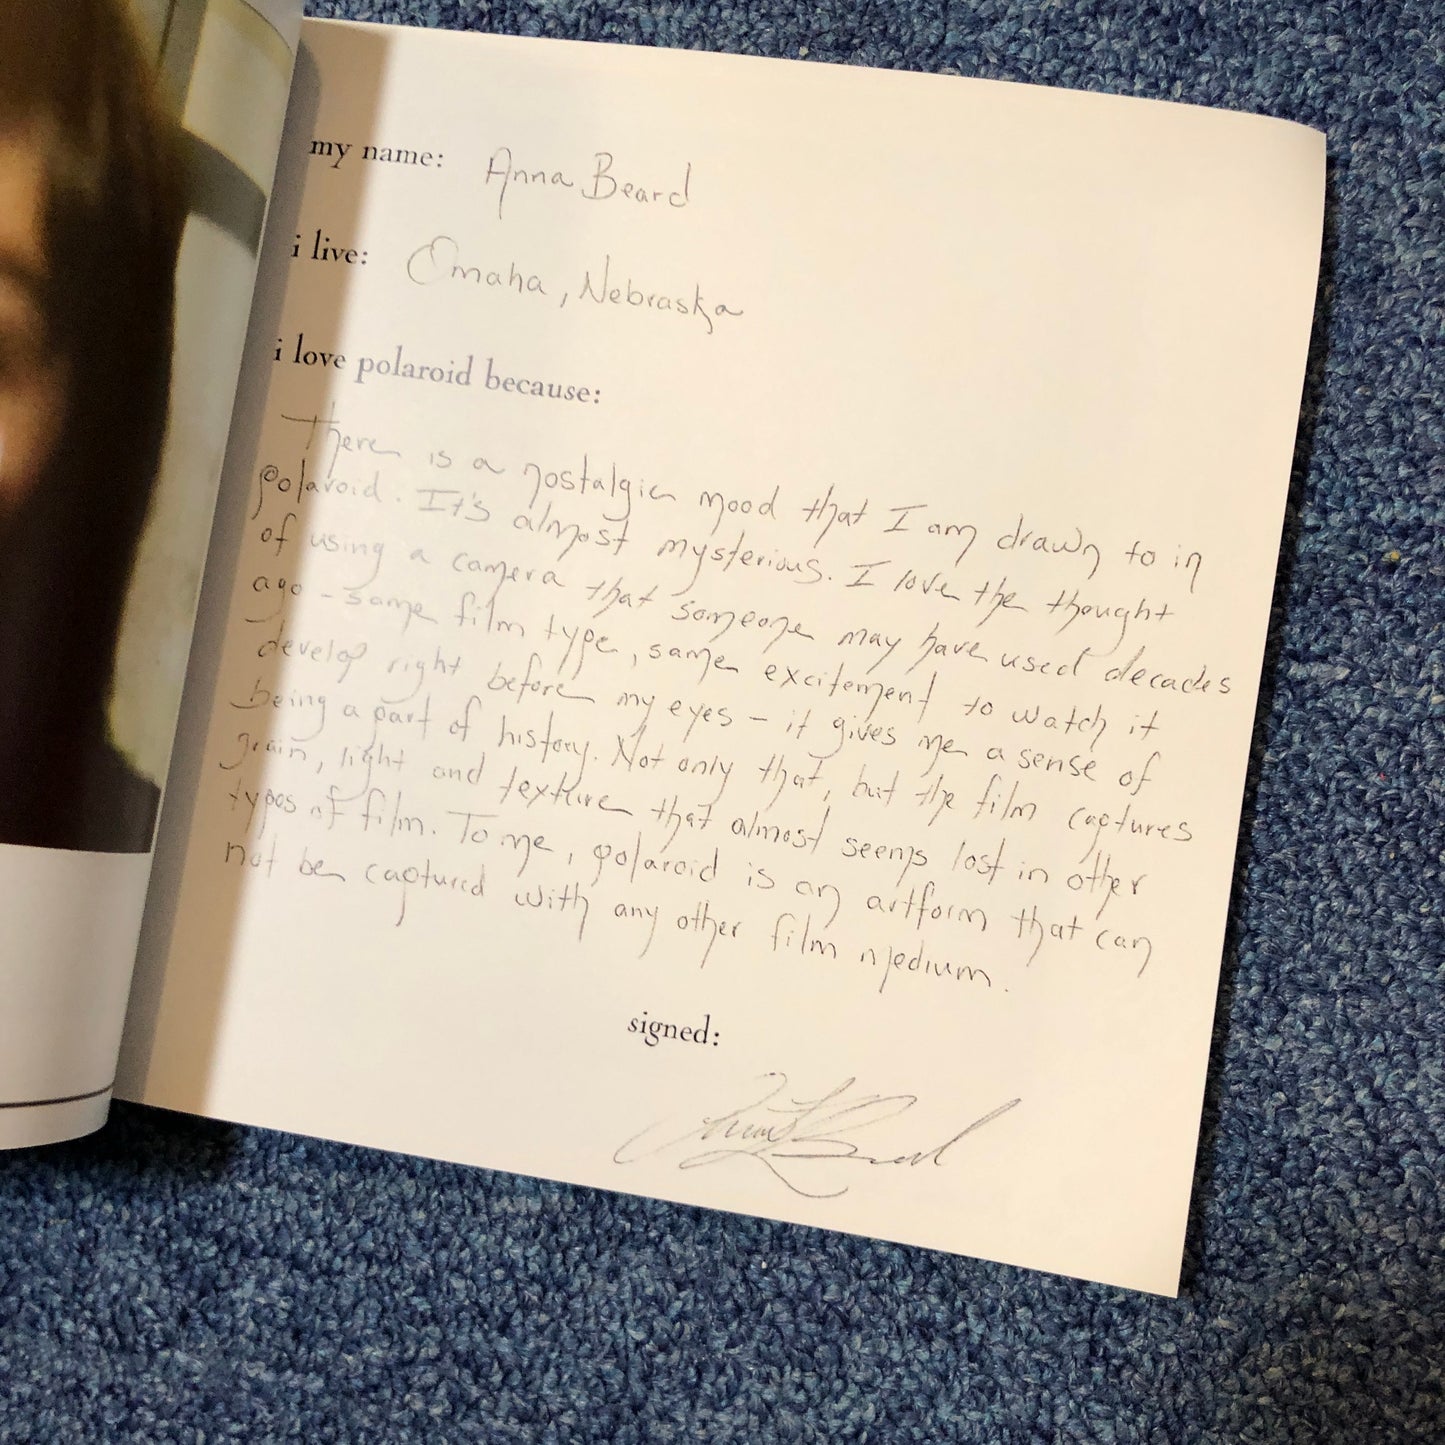 my name: Anna Beard
i live: Omaha, Nebraska
i love polaroid because:
There is a nostalgic mood that I am drawn to in
polaroid. It's almost mysterious. I love the thought
of using a camera that someone may have used decades
ago - same film type, same excitement to watch it
develop right before my eyes - it gives me a sense of
being a part of history. Not only that, but the film captures
grain, light and texture that almost seems lost in other
types of film. To me, polaroid is an artform that can
not be captured with any other film medium.
signed:
Beard